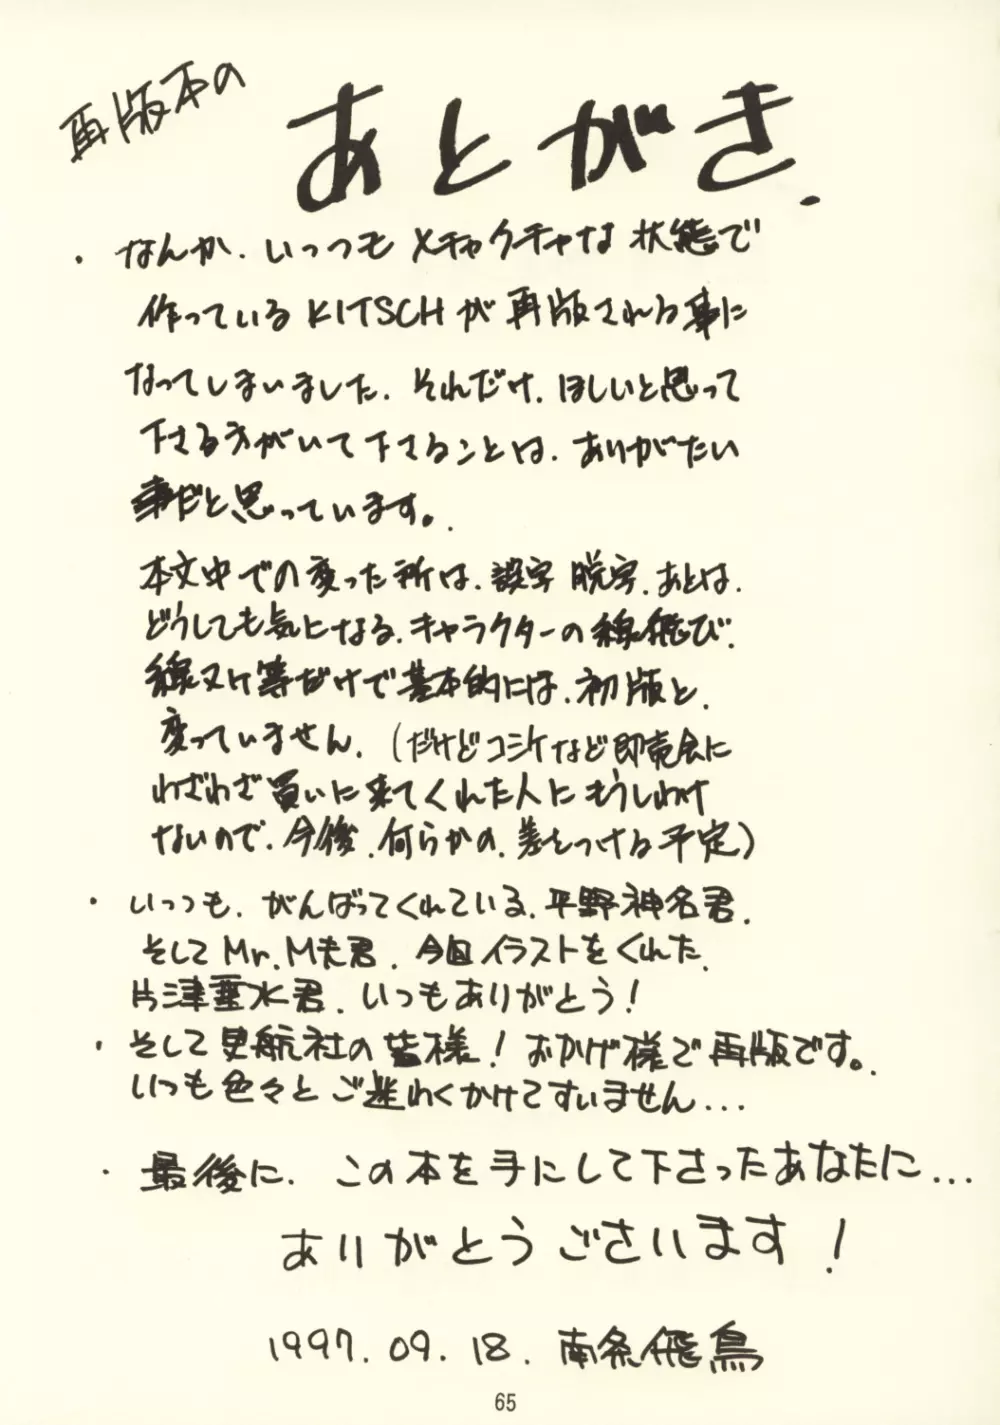 再版本の
あとがき.
・なんか、いっつもメチャクチャな状態で
作っているKITSCHが再版される事に
なってしまいました。それだけ、ほしいと思って
下さる方がいて下さることは、ありがたい
事だと思っています。
本文中での変った所は、誤字 脱字、あとは、
どうしても気になる、キャラクターの線飛び、
線ヌケ等だけで基本的には、初版と、
変っていません。(だけどコミケなど即売会に
わざわざ買いに来てくれた人にもうしわけ
ないので、今後、何らかの、差をつける予定)
・いっつも、がんばってくれている、平野神名君、
そしてMr.M夫君、今回イラストをくれた、
片津亜水君、いつもありがとう!
・そして 航社の皆様!おかげ様で再版です。
いつも色々とご迷わくかけてすいません...
・最後に、この本を手にして下さったあなたに...
ありがとうございます!
1997.09.18.南条飛鳥
65